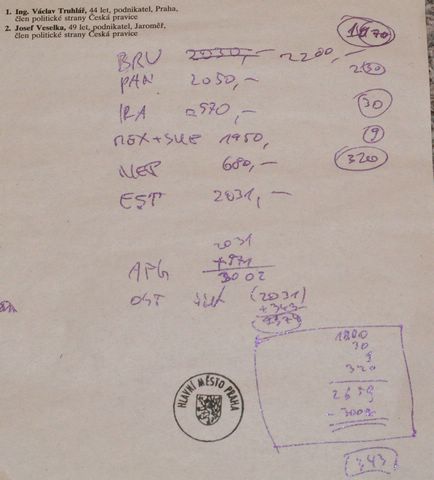 1. Ing. Václav Truhlář, 44 let, podnikatel, Praha,
člen politické strany Česká pravice
2. Josef Veselka, 49 let, podnikatel, Jaroměř,
člen politické strany Česká pravice
1970
BRU 2050,- 2200,-
PAN 2050,- 230
IRA 2970,- 30
MEX+SUE 1950,- 9
NEP 680,- 320
EST 2031,-
2031
+971
AFG 3002
OST (2031)
+343
HLAVNÍ MĚSTO PRAHA
30
9
320
343